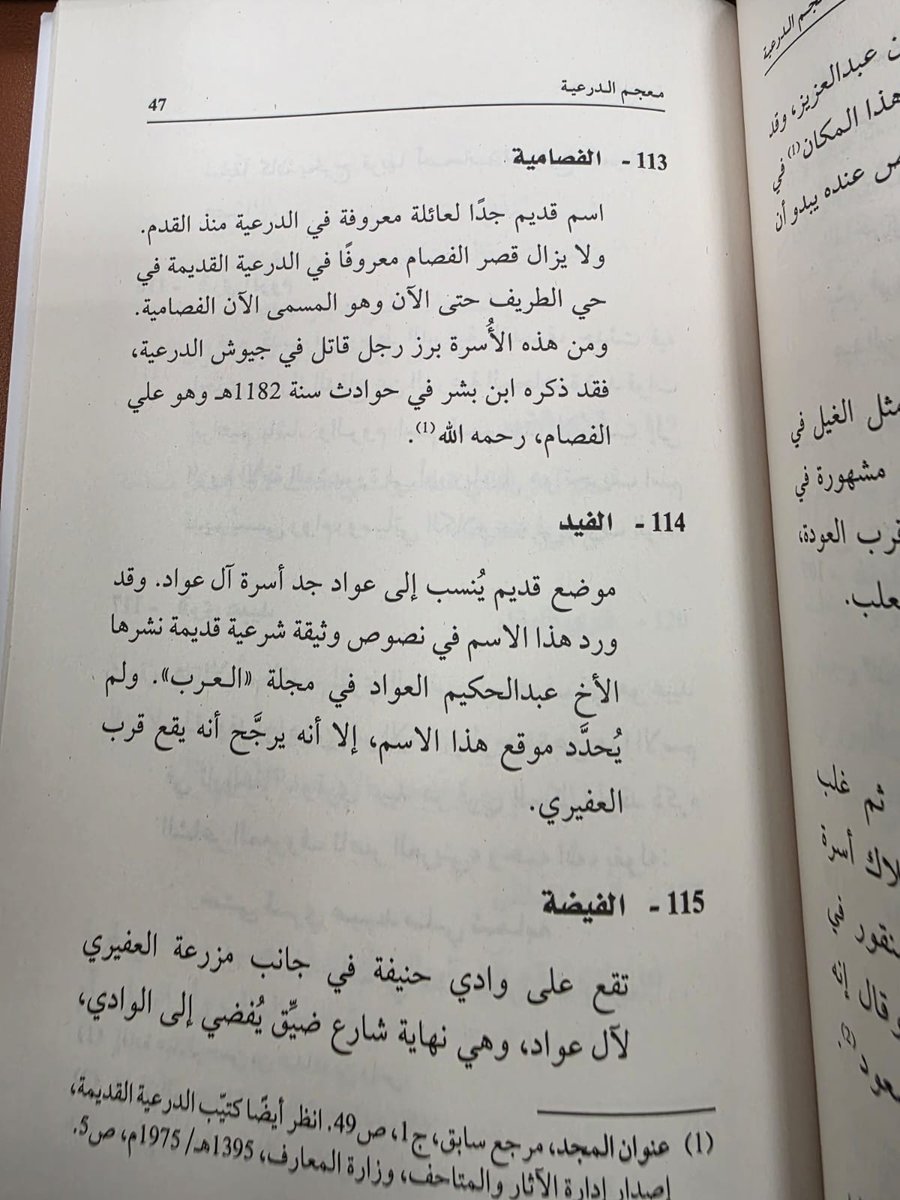 معجم الدرعية
47
113 - الفصامية
اسم قديم جدًا لعائلة معروفة في الدرعية منذ القدم.
ولا يزال قصر الفصام معروفًا في الدرعية القديمة في
حي الطريف حتى الآن وهو المسمى الآن الفصامية.
ومن هذه الأُسرة برز رجل قاتل في جيوش الدرعية،
فقد ذكره ابن بشر في حوادث سنة 1182هـ وهو علي
الفصام، رحمه الله(1).
114 - الفيد
موضع قديم يُنسب إلى عواد جد أسرة آل عواد. وقد
ورد هذا الاسم في نصوص وثيقة شرعية قديمة نشرها
الأخ عبدالحكيم العواد في مجلة «العرب». ولم
يُحدَّد موقع هذا الاسم، إلا أنه يرجَّح أنه يقع قرب
العفيري.
115 - الفيضة
تقع على وادي حنيفة في جانب مزرعة العفيري
لآل عواد، وهي نهاية شارع ضيِّق يُفضي إلى الوادي،
(1) عنوان المجد، مرجع سابق، ج1، ص49. انظر أيضًا كتيّب الدرعية القديمة،
إصدار إدارة الآثار والمتاحف، وزارة المعارف، 1395هـ/ 1975م، ص5.
عبدالعزيز، وقد
هذا المكان(1) في
عنده يبدو أن
مثل الغيل في
مشهورة في
قرب العودة،
ثم غلب
أسرة
وقال إنه